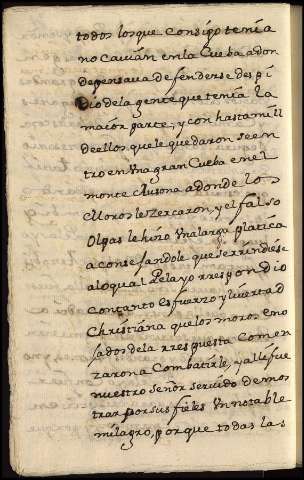 todos los que consigo tenia
no caviàn en la Cueba adon
de pensava defenderse despi
dio de la gente que tenia la
maior parte, y con hasta mill
de ellos que le quedaron se en
tro en vna gran Cueba en el
monte Ausona a donde los
Moros le zercaron, y el falso
Olpas le hizo vna larga platica
aconsejandole que se rrindiese
a lo qual Pelayo rrespondio
con tanto esfuerzo y livertad
Christiàna que los moros eno
jados de la rrespuesta comen
zaron a Combatirle, y allì fue
nuestro Señor servido demos
trar por sus fieles vn notable
milagro, porque todas las